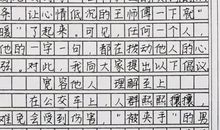 车，让心情低沉的王师傅一下就"
暖"了起来，可见，任何一个人，
他的一字一句，都在拨动他人的心
弦。对此，我向大家提出以下倡议
宽容他人 理解至上
在公交车上，人群熙熙攘攘，
难免会受到伤害，"被夹手"的男